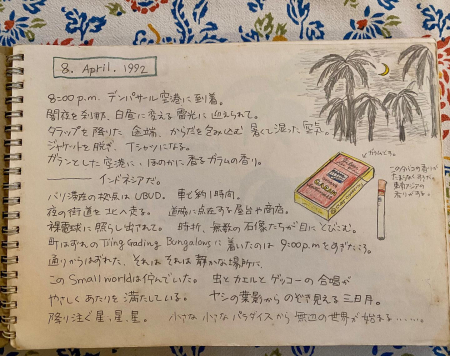 8. April. 1992
8:00 p.m. デンパサール空港に到着。
闇夜を引裂き、白昼に変える雷光に迎えられて。
タラップを降りた途端、からだを包み込む 暑くて湿った空気。
ジャケットを脱ぎ、Tシャツになる。
ガランとした空港に、ほのかに香るガラムの香り。
—— インドネシアだ。
バリ滞在の拠点は UBUD. 車で約1時間。
夜の街道を北へ走る。 道脇に点在する屋台や商店。
裸電球に照らし出されて。 時折、無数の石像たちが目にとびこむ。
町はずれの Tring Gading Bungalows に着いたのは 9:00p.m をすぎたころ。
通りからはずれた、それは それは 静かな場所に、
この Small world は佇んでいた。 虫とカエルとゲッコーの 合唱が
やさしく あたりを 満たしている。 ヤシの葉影から のぞき見える 三日月。
降り注ぐ 星、星、星。 小さな 小さな パラダイスから 無辺の世界が 始まる……。
ガラムとゆう。
このタバコの香りが
たまらなく
東南アジアの